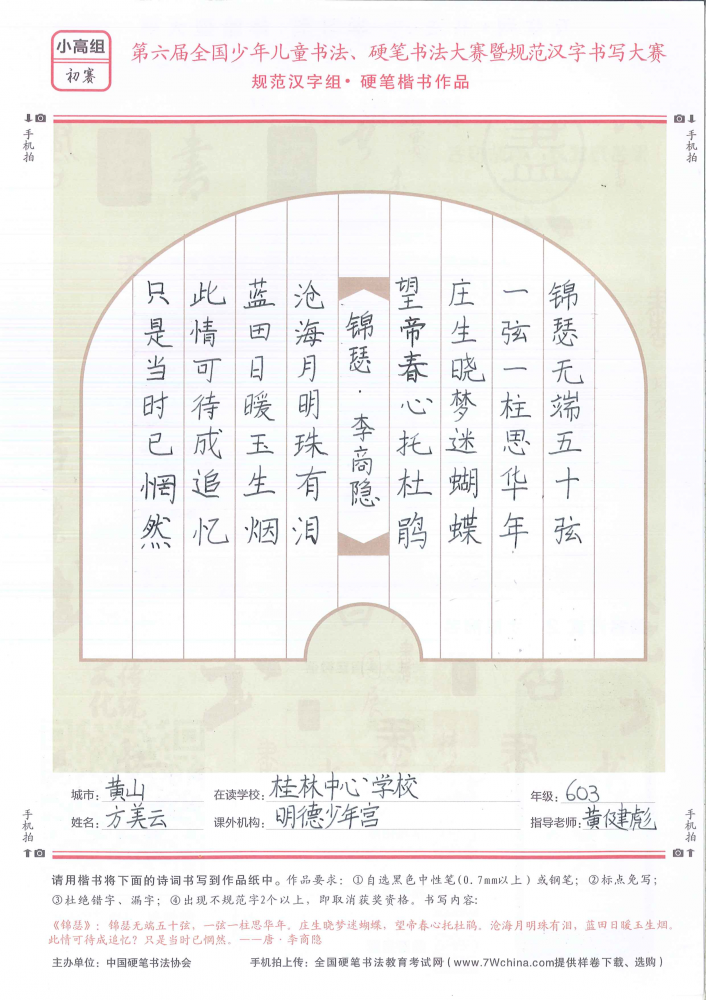 小高组
初赛
第六届全国少年儿童书法、硬笔书法大赛暨规范汉字书写大赛
规范汉字组•硬笔楷书作品
手机拍
手机拍
锦瑟无端五十弦
一弦一柱思华年
庄生晓梦迷蝴蝶
望帝春心托杜鹃
锦瑟·李商隐
沧海月明珠有泪
蓝田日暖玉生烟
此情可待成追忆
只是当时已惘然
城市：黄山 在读学校：桂林中心学校 年级：603
姓名：方美云 课外机构：明德少年宫 指导老师：黄健彪
手机拍
手机拍
请用楷书将下面的诗词书写到作品纸中。作品要求：①自选黑色中性笔(0.7mm以上)或钢笔；②标点免写；
③杜绝错字、漏字；④出现不规范字2个以上，即取消获奖资格。书写内容：
《锦瑟》：锦瑟无端五十弦，一弦一柱思华年。庄生晓梦迷蝴蝶，望帝春心托杜鹃。沧海月明珠有泪，蓝田日暖玉生烟。
此情可待成追忆？只是当时已惘然。——唐·李商隐
主办单位：中国硬笔书法协会 手机拍上传：全国硬笔书法教育考试网(www.7Wchina.com提供样卷下载、选购)